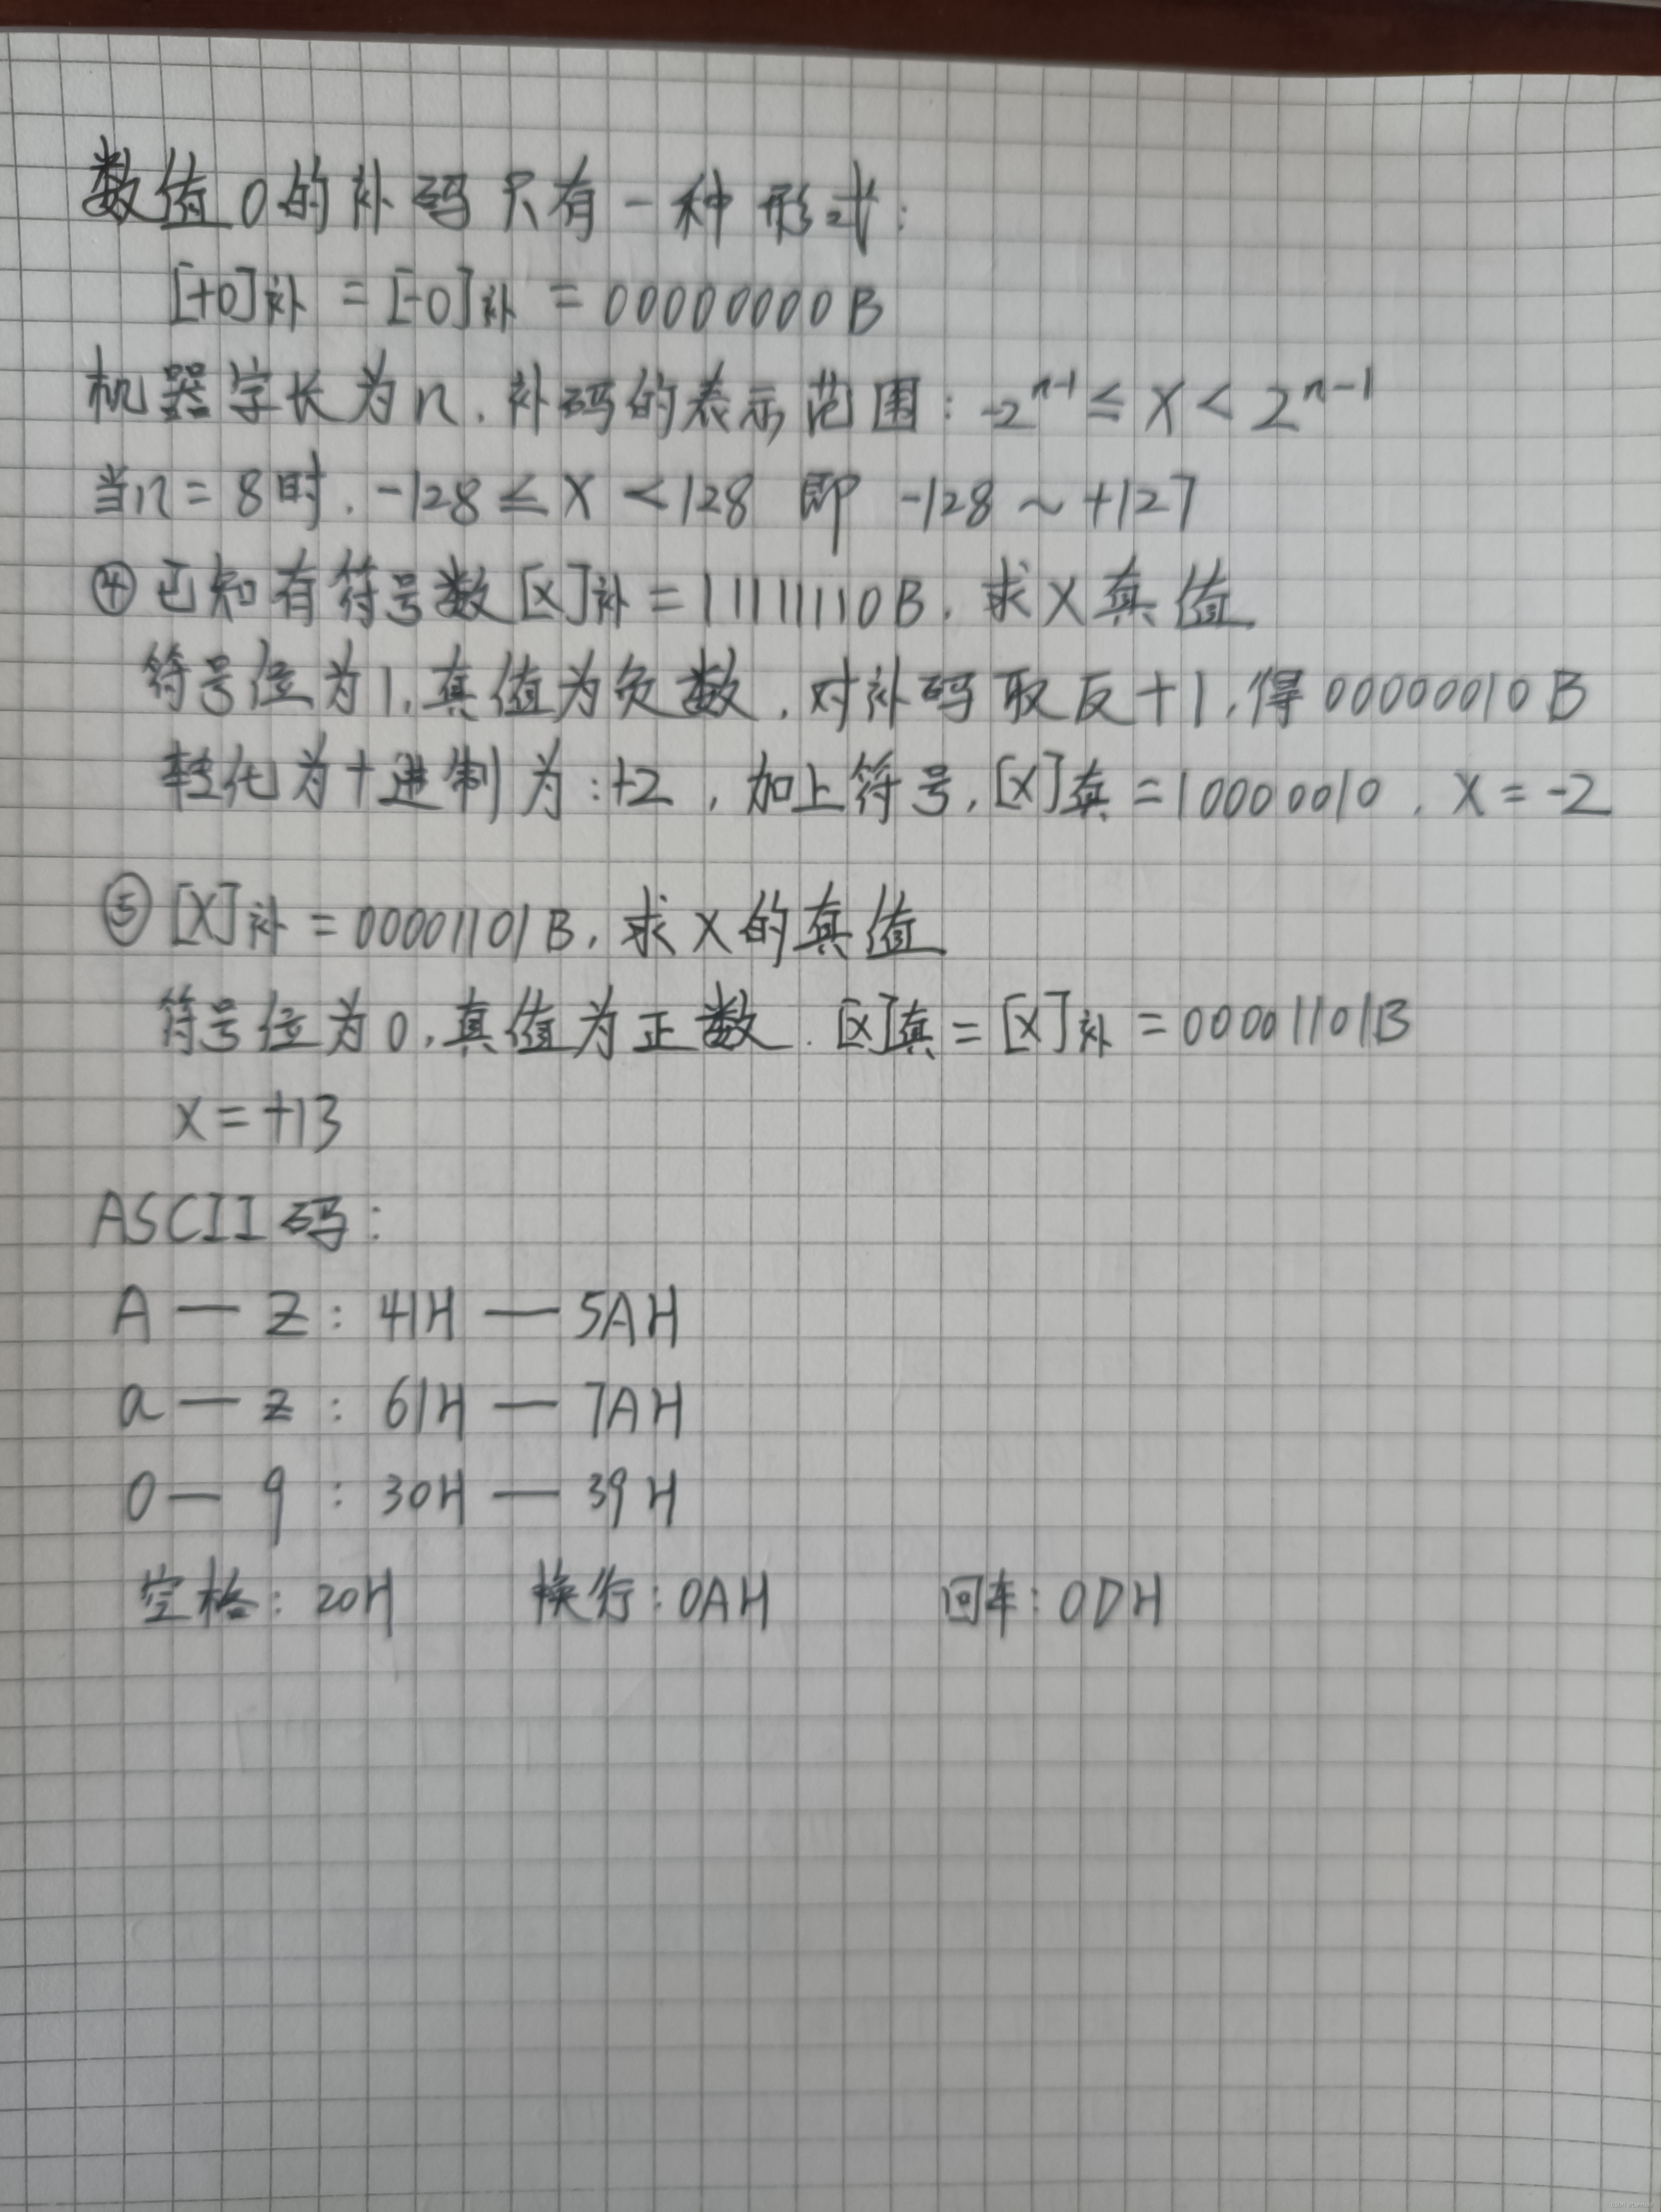 数值0的补码只有一种形式:
[+0]补 = [-0]补 = 00000000B
机器字长为n,补码的表示范围: -2^(n-1) ≤ X < 2^(n-1)
当n=8时,-128 ≤ X < 128 即 -128 ~ +127
④ 已知有符号数[X]补 = 11111110B,求X真值
符号位为1,真值为负数,对补码取反+1,得00000010B
转化为十进制为:+2,加上符号,[X]真 = 10000010,X = -2
⑤ [X]补 = 00001101B,求X的真值
符号位为0,真值为正数.[X]真 = [X]补 = 00001101B
X = +13
ASCII码:
A — Z: 41H — 5AH
a — z: 61H — 7AH
0 — 9: 30H — 39H
空格: 20H 换行: 0AH 回车: 0DH